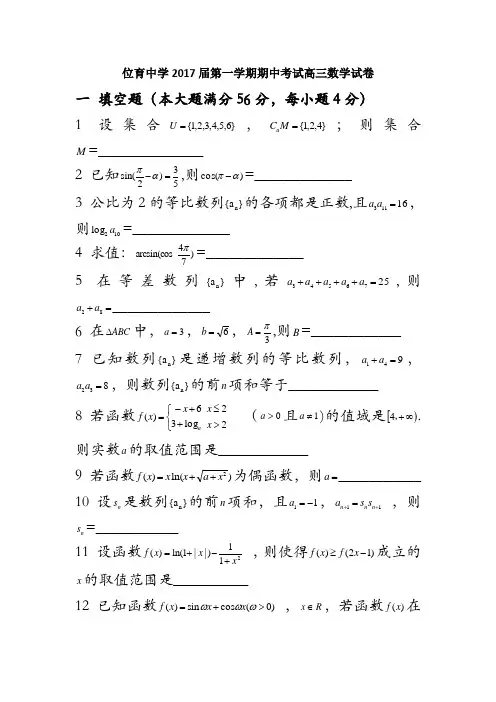 位育中学2017届第一学期期中考试高三数学试卷
一 填空题（本大题满分56分，每小题4分）
1 设集合U={1,2,3,4,5,6}，CₙM={1,2,4}；则集合
M=________________
2 已知sin(π/2−α)=3/5,则cos(π−α)=_______________
3 公比为2的等比数列{aₙ}的各项都是正数,且a₃a₁₁=16，
则log₂a₁₀=_______________
4 求值：arcsin(cos 4π/7)=_______________
5 在等差数列{aₙ}中，若a₃+a₄+a₅+a₆+a₇=25，则
a₂+a₈=_______________
6 在ΔABC中，a=3，b=√6，A=π/3,则B=______________
7 已知数列{aₙ}是递增数列的等比数列，a₁+a₄=9，
a₂a₃=8，则数列{aₙ}的前n项和等于______________
8 若函数f(x)={−x+6 x≤2 3+logₐ x>2 （a>0且a≠1)的值域是[4,+∞).
则实数a的取值范围是______________
9 若函数f(x)=xln(x+√(a+x²))为偶函数，则a=_____________
10 设sₙ是数列{aₙ}的前n项和，且a₁=−1，aₙ₊₁=sₙsₙ₊₁，则
sₙ=_____________
11 设函数f(x)=ln(1+|x|)−1/(1+x²)，则使得f(x)≥f(2x−1)成立的
x的取值范围是____________
12 已知函数f(x)=sinωx+cosωx(ω>0)，x∈R，若函数f(x)在